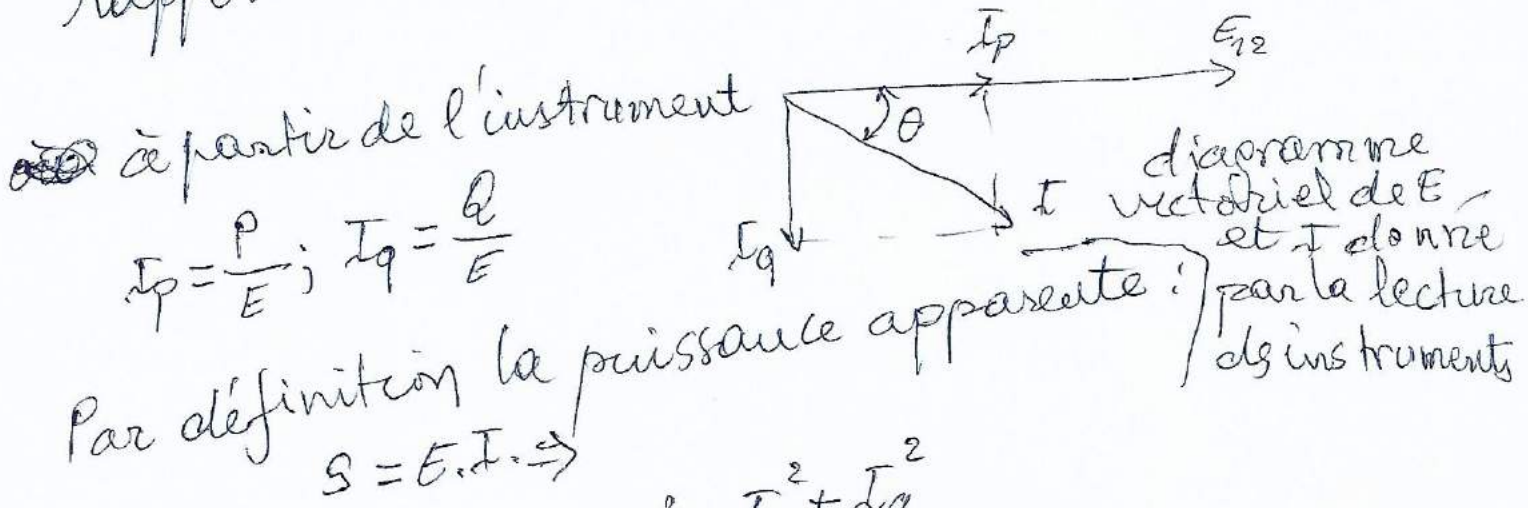 à partir de l'instrument
Ip = P/E ; Iq = Q/E
Ip E12
θ
I
Iq
diagramme
vectoriel de E
et I donné
par la lecture
ds instruments
Par définition la puissance apparente :
S = E.I. ⇒
I² + Iq²